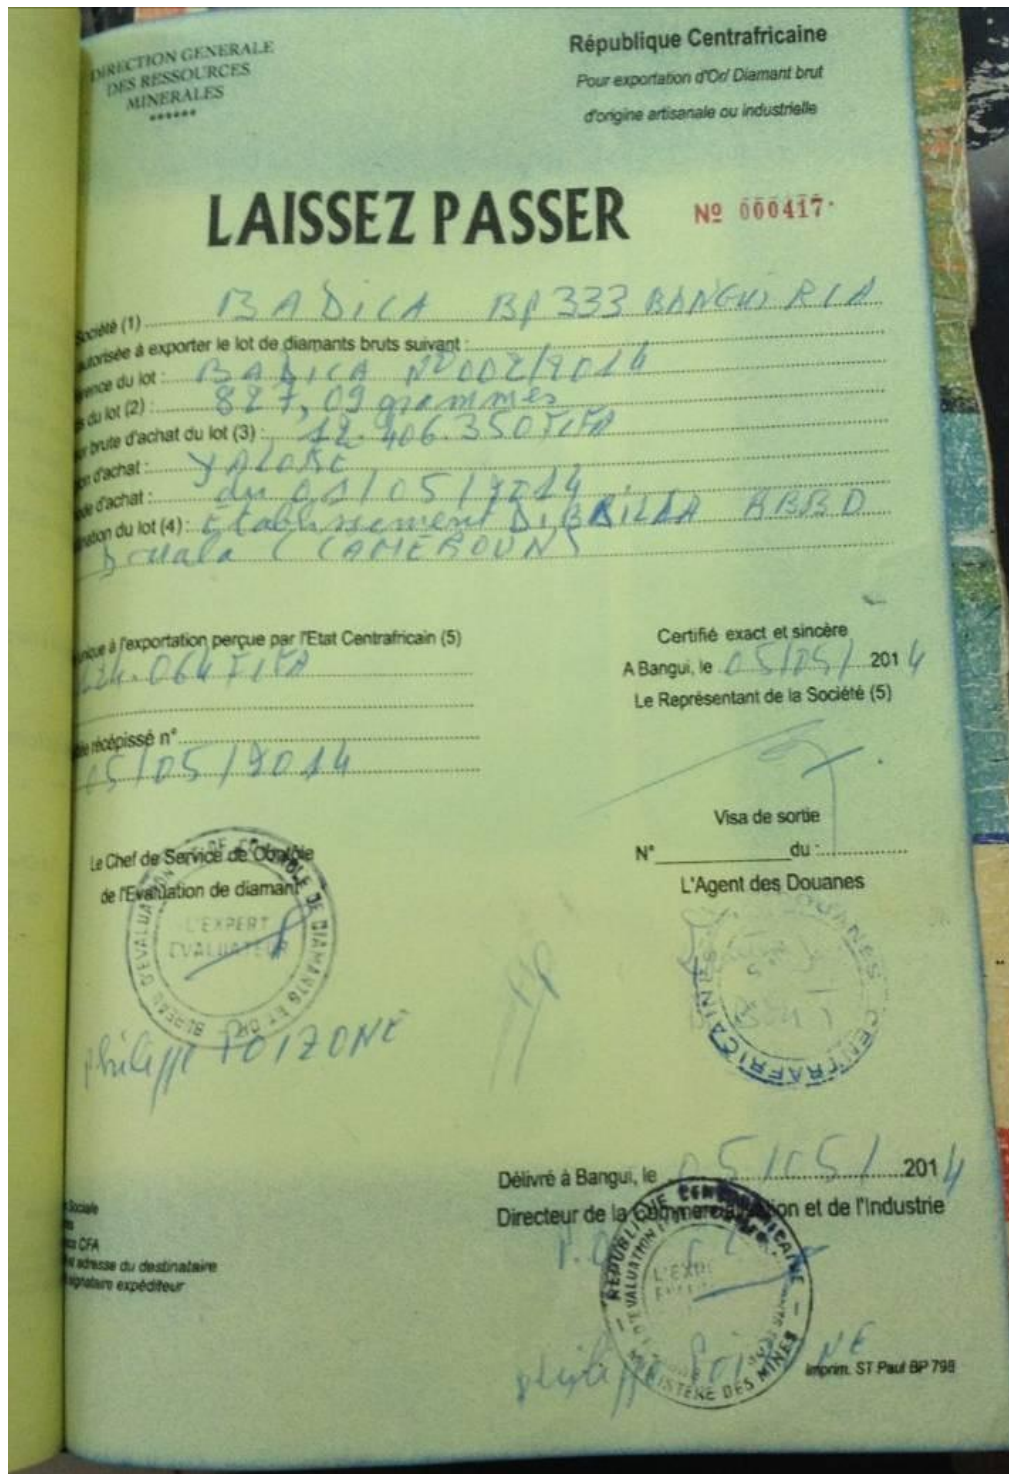 DIRECTION GENERALE
DES RESSOURCES
MINERALES
******
République Centrafricaine
Pour exportation d'Or/ Diamant brut
d'origine artisanale ou industrielle
LAISSEZ PASSER
Nº 000417
Société (1) BADICA BP 333 BANGUI RCA
autorisée à exporter le lot de diamants bruts suivant :
rence du lot : BADICA Nº 002/2014
s du lot (2) : 827,09 grammes
r brute d'achat du lot (3) : 12.406.350 FCFA
on d'achat : YALOKE
ode d'achat : du 01/05/2014
ination du lot (4) : Etablissement
Douala (CAMEROUN)
unique à l'exportation perçue par l'Etat Centrafricain (5)
FCFA
récépissé n°
05/05/2014
Certifié exact et sincère
A Bangui, le 05/05/ 2014
Le Représentant de la Société (5)
Visa de sortie
N° du :
Le Chef de Service de Contrôle
de l'Evaluation de diamant
L'EXPERT
EVALUATEUR
BUREAU D'EVALUATION ET DE CONTROLE DE DIAMANTS ET OR
L'Agent des Douanes
DOUANES CENTRAFRICAINES
Philippe POIZONE
Délivré à Bangui, le 05/05/ 2014
Directeur de la Commercialisation et de l'Industrie
REPUBLIQUE CENTRAFRICAINE
MINISTERE DES MINES
Philippe POIZONE
Sociale
CFA
et adresse du destinataire
signataire expéditeur
Imprim. ST Paul BP 798